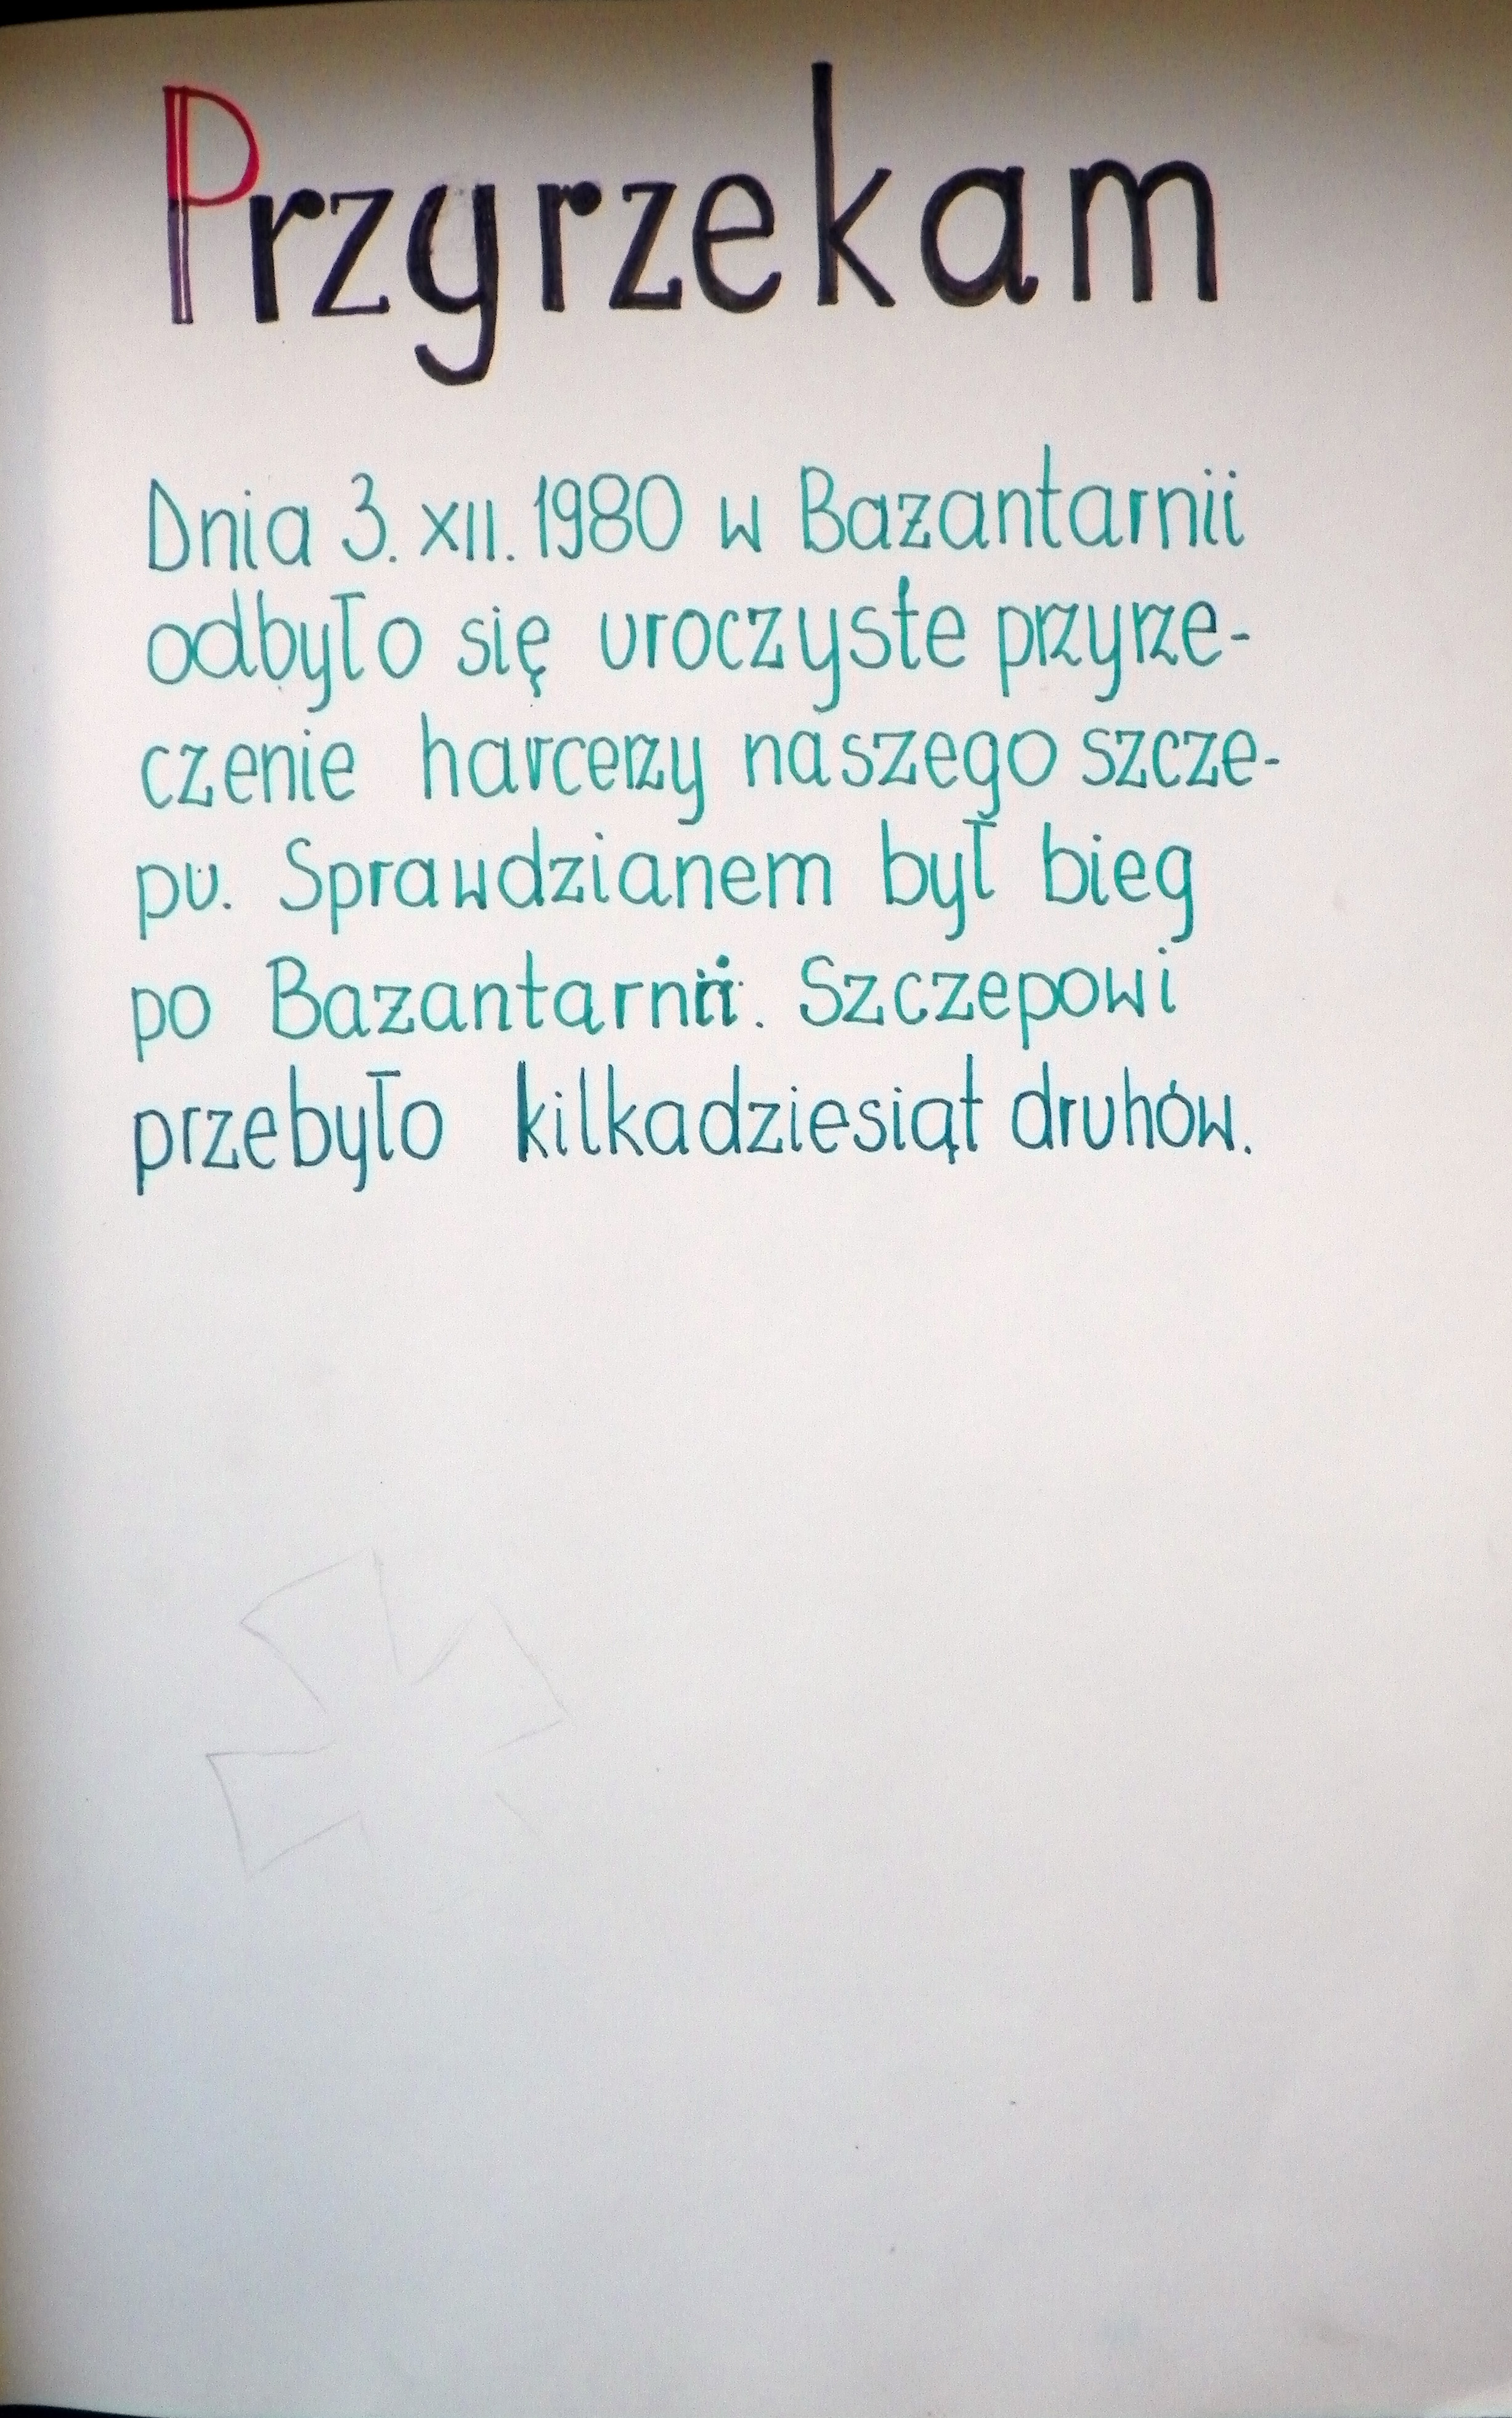 Przyrzekam
Dnia 3. XII. 1980 w Bażantarnii
odbyło się uroczyste przyrze-
czenie harcerzy naszego szcze-
pu. Sprawdzianem był bieg
po Bażantarnii. Szczepowi
przebyło kilkadziesiąt druhów.